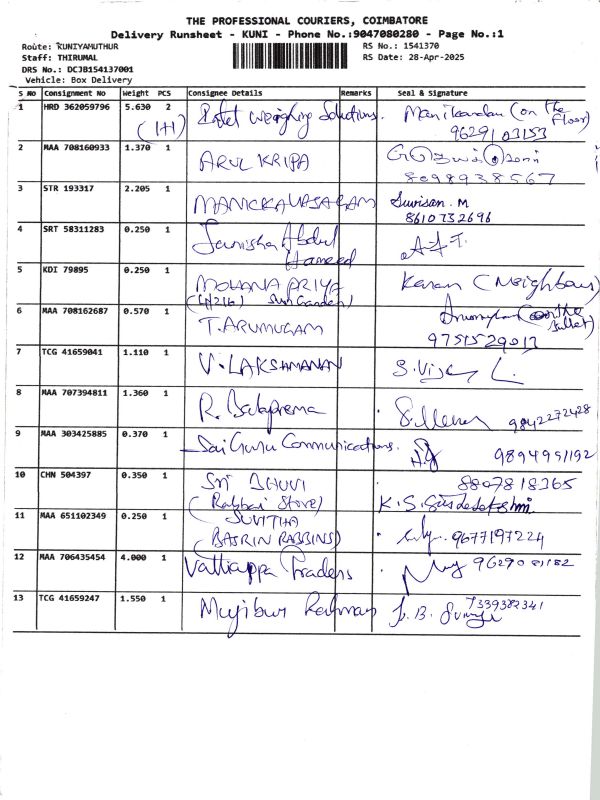 THE PROFESSIONAL COURIERS, COIMBATORE
Delivery Runsheet - KUNI - Phone No.:9047080280 - Page No.:1
Route: KUNIYAMUTHUR
Staff: THIRUMAL
DRS No.: DCJB154137001
Vehicle: Box Delivery
RS No.: 1541370
RS Date: 28-Apr-2025
S No Consignment No Weight PCS Consignee Details Remarks Seal & Signature
1 HRD 362059796 5.630 2 Weighing Solutions. Manikandan (on the floor)
(1+1) 9629103153
2 MAA 708160933 1.370 1 ARUL KRIPA
8098938567
3 STR 193317 2.205 1 MANICKAVASAGAM Suvisan. M
8610732696
4 SRT 58311283 0.250 1 Abdul
Hameed
5 KDI 79895 0.250 1 MOHANA PRIYA Karan (Neighbour)
6 MAA 708162687 0.570 1 T. ARUMUGAM
9751529013
7 TCG 41659041 1.110 1 V. LAKSHMANAN
8 MAA 707394811 1.360 1 R. Balaprema 9842272428
9 MAA 303425885 0.370 1 Sai Guru Communications. 9894951192
10 CHN 504397 0.350 1 SRI BHUVI 8807818365
(Rabbai Store)
11 MAA 651102349 0.250 1 SUVITHA
(BASRIN RABBINS) 9677197224
12 MAA 706435454 4.000 1 Vattiappa Traders
13 TCG 41659247 1.550 1 Mujibur Rahman 7339382341